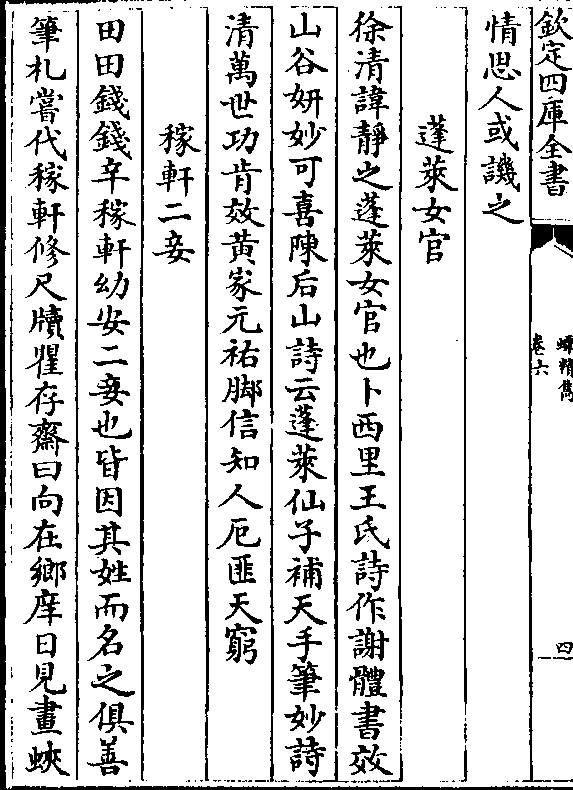 欽定四庫全書
蟫精雋
卷六
四
情思人或譏之
蓬萊女官
徐清諱靜之蓬萊女官也卜西里王氏詩作謝體書效
山谷妍妙可喜陳后山詩云蓬萊仙子補天手筆妙詩
清萬世功肯效黄家元祐脚信知人厄匪天窮
稼軒二妾
田田錢錢辛稼軒幼安二妾也皆因其姓而名之俱善
筆札嘗代稼軒修尺牘瞿存齋曰向在鄉庠日見畫蛺